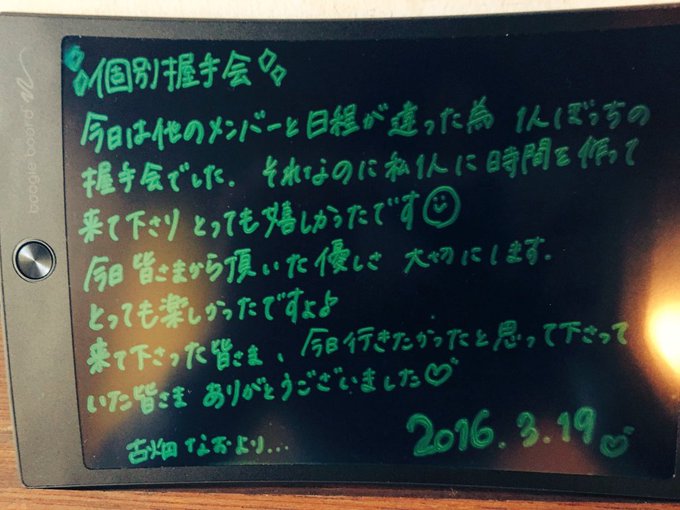 個別握手会
今日は他のメンバーと日程が違った為 1人ぼっちの
握手会でした. それなのに私1人に時間を作って
来て下さり とっても嬉しかったです
今日 皆さまから頂いた優しさ 大切にします.
とっても楽しかったですよょ
来て下さった皆さま、今日行きたかったと思って下さって
いた皆さま ありがとうございました♡
古畑 なおより...
2016.3.19♡
boogie board